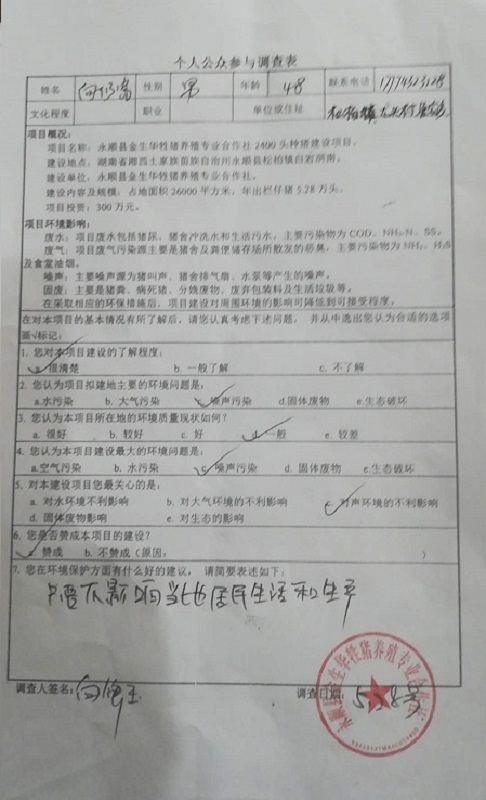 个人公众参与调查表
姓名 性别 男 年龄 48 联系电话
文化程度 职业 单位或住址
项目概况：
项目名称：永顺县金生华牲猪养殖专业合作社2400头种猪建设项目。
建设地点：湖南省湘西土家族苗族自治州永顺县松柏镇
建设单位：永顺县金生华牲猪养殖专业合作社。
建设内容及规模：占地面积26000平方米，年出栏仔猪5.28万头。
项目投资：300万元。
项目环境影响：
废水：项目废水包括猪尿、猪舍冲洗水和生活污水，主要污染物为COD、NH₃-N、SS。
废气：项目废气污染源主要是猪舍及粪便储存场所散发的恶臭，主要污染物为NH₃、H₂S
及食堂油烟。
噪声：主要噪声源为猪叫声、猪舍排气扇、水泵等产生的噪声。
固废：主要是猪粪、病死猪、分娩废物、废弃包装料及生活垃圾等。
在采取相应的环保措施后，项目建设对周围环境的影响可降低到可接受程度。
在对本项目的基本情况有所了解后，请您认真考虑下述问题，并从中选出您认为合适的选项
画√标记：
1. 您对本项目建设的了解程度：
a. 很清楚 b. 一般了解 c. 不了解
2. 您认为项目拟建地主要的环境问题是：
a.水污染 b. 大气污染 c.噪声污染 d.固体废物 e.生态破坏
3. 您认为本项目所在地的环境质量现状如何？
a. 很好 b. 较好 c. 好 d.一般 e. 较差
4. 您认为本项目建设最大的环境问题是：
a.空气污染 b. 水污染 c.噪声污染 d. 固体废物 e.生态破坏
5. 对本建设项目您最关心的是：
a. 对水环境不利影响 b. 对大气环境的不利影响 c. 对声环境的不利影响
d. 固体废物影响 e. 对生态的影响
6. 您是否赞成本项目的建设？
a. 赞成 b. 不赞成（原因： ）
7. 您在环境保护方面有什么好的建议，请简要表述如下：
不影响当地居民生活和生产
调查人签名： 调查日期：5.28号
永顺县金生华牲猪养殖专业合作社